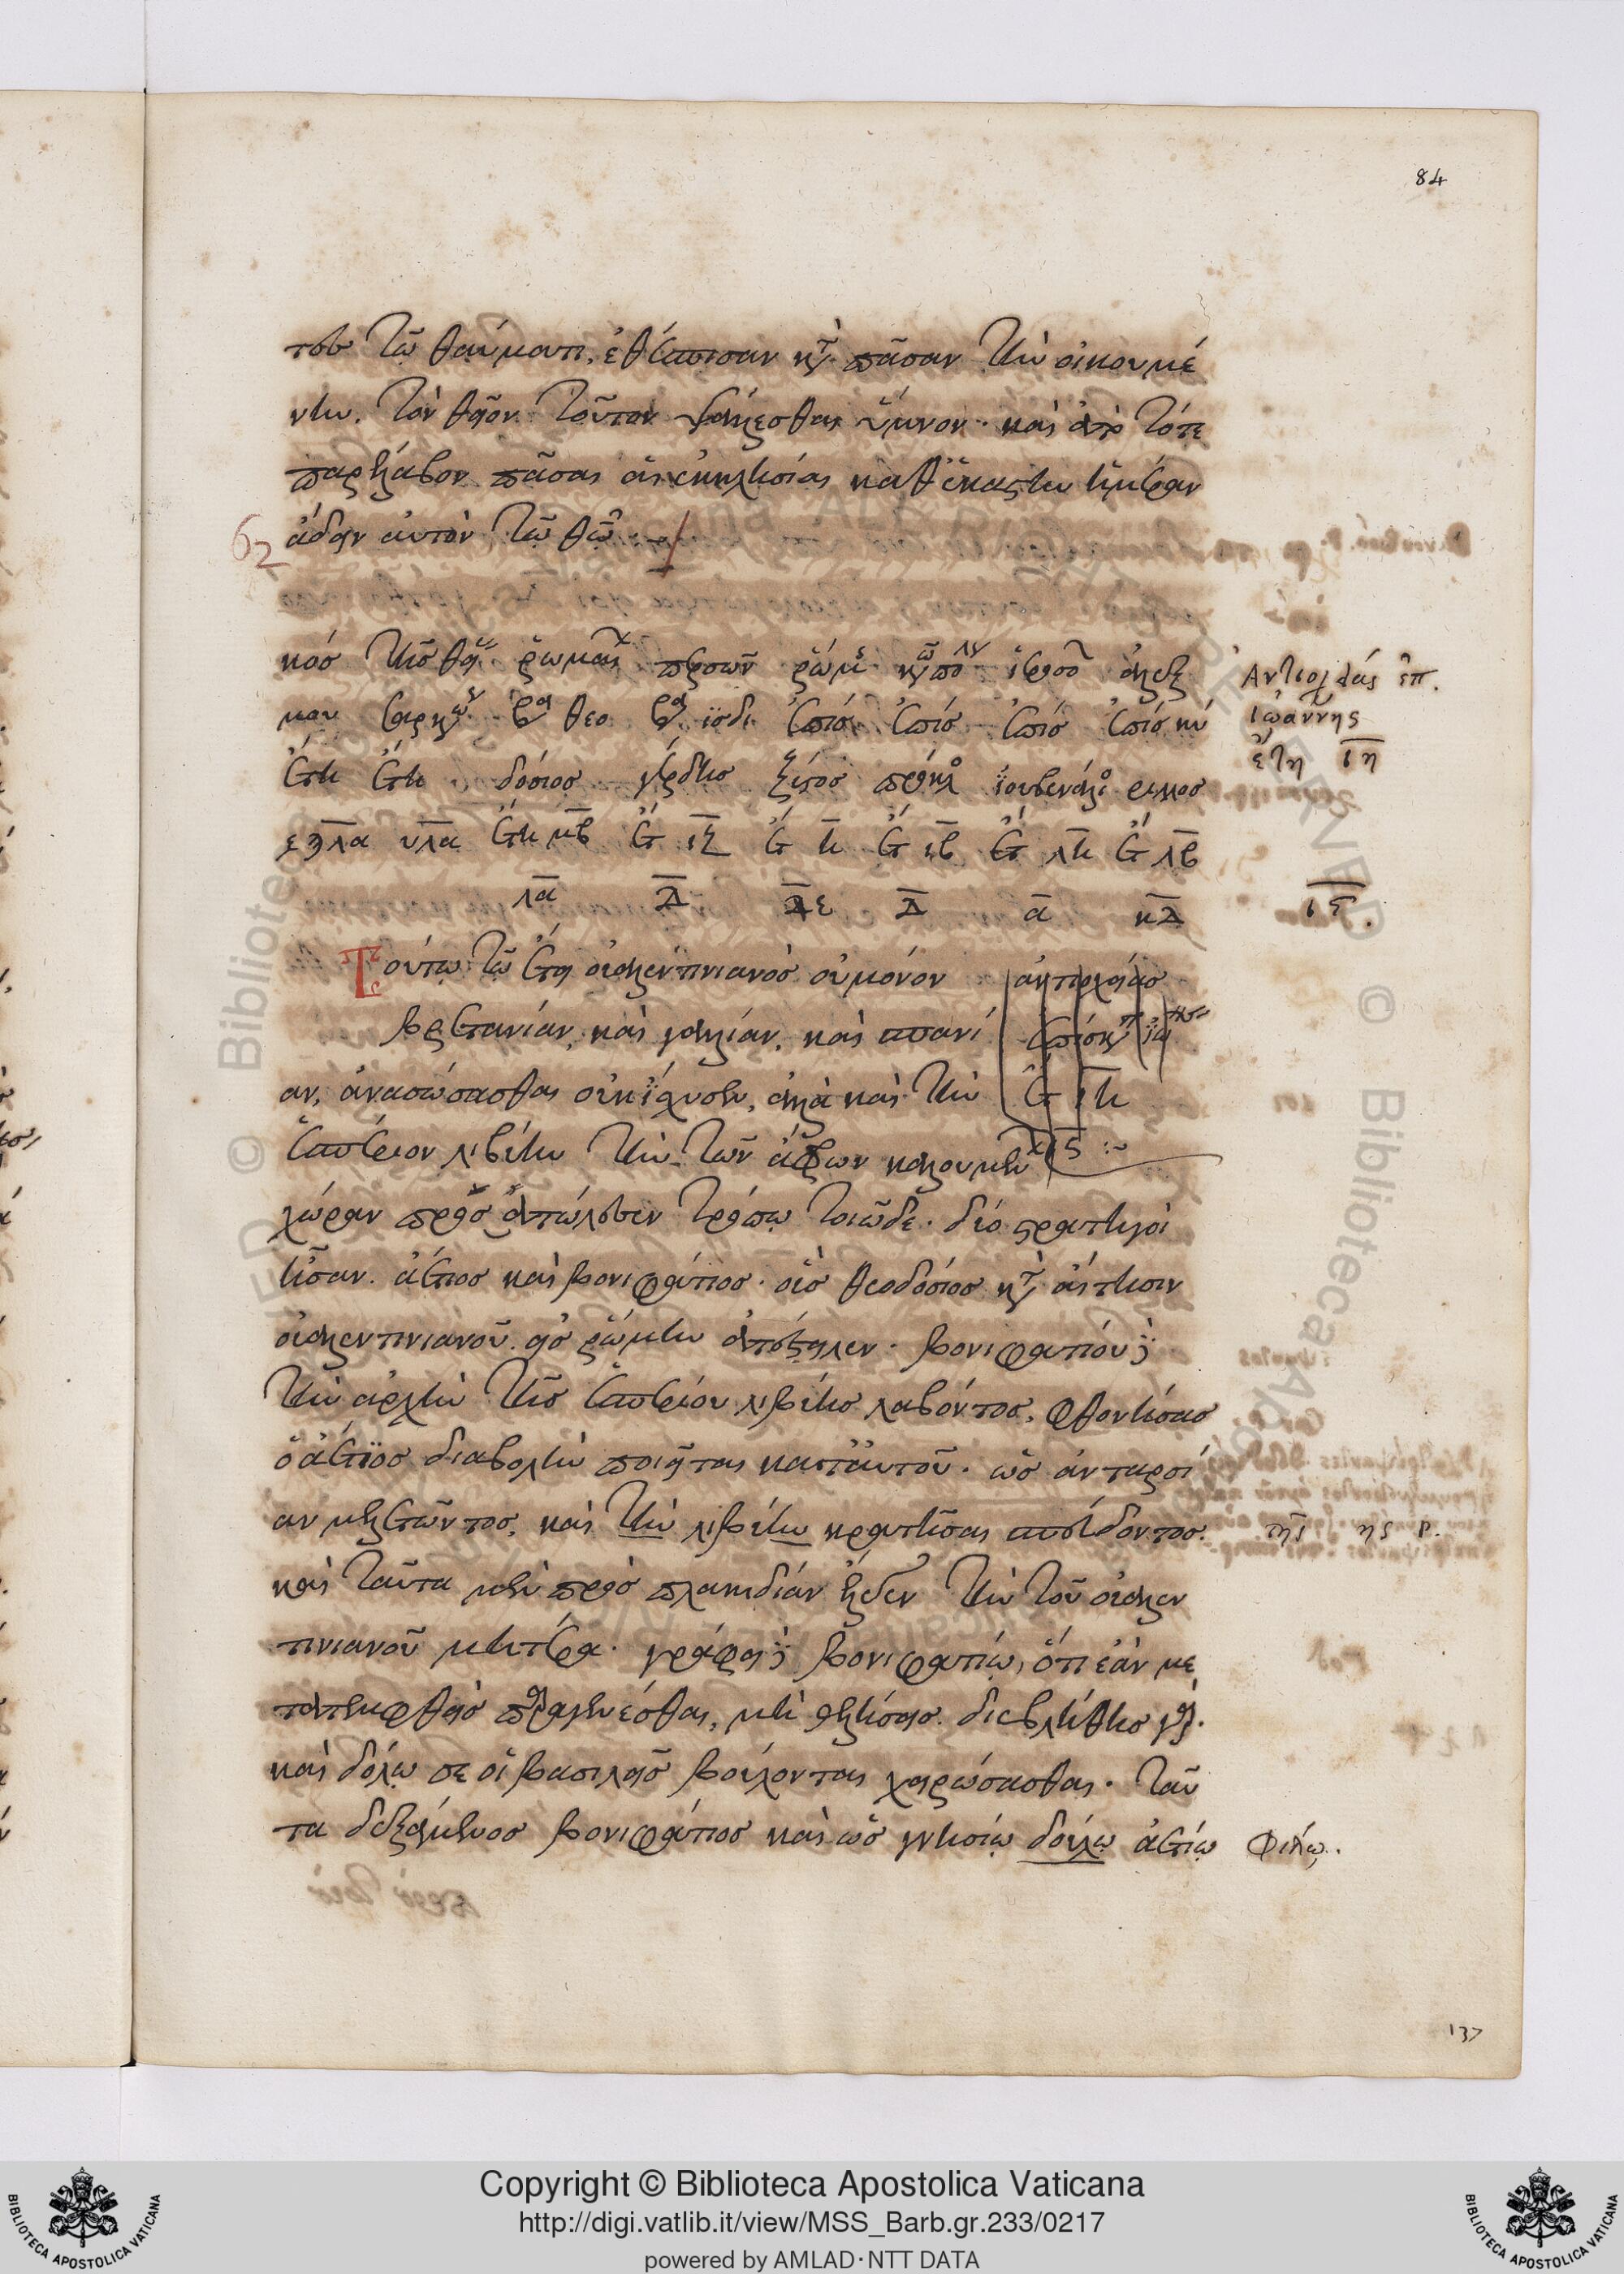 84
του τῷ θαύματι, ἐθέσπισαν κατὰ πᾶσαν τὴν οἰκουμέ
νην. τὸν θεῖον τοῦτον ψάλλεσθαι ὕμνον. καὶ ἀπὸ τότε
παρέλαβον πᾶσαι αἱ ἐκκλησίαι καθ' ἑκάστην ἡμέραν
62 ἄδειν αὐτὸν τῷ θῷ
κόσ τῆσ θεί ῥωμαί περσῶν ῥώμ κων πο ἱεροσ ἀλεξ
ἔτη ἔτη δόσιος γέρδησ ξύστοσ πρόκλ ἰουβενάλι
ͅεϡλα υλα ἔτη μβ ἔ ιζ ἔ η ἔ ιβ ἔ λη ἔ λβ
λα δ ε δ α κδ
Ἀντιοχείας ἐπ.
Ἰωάννης
ἔτη ιη
ις.
Τούτῳ τῷ ἔτει οὐαλεντινιανὸσ οὐ μόνον
βρετανίαν, καὶ γαλλίαν, καὶ σπανί
αν, ἀνασώσασθαι οὐκ ἴσχυσεν, ἀλλὰ καὶ τὴν
ἑσπέριον λιβύην τὴν τῶν ἄφρων καλουμένην
ἀντιοχείασ
ἐπίσκοπ ἰω
ἔ ιη
ις
χώραν προσαπώλεσεν τρόπῳ τοιῷδε. δύο στρατηγοὶ
ἦσαν. ἀέτιοσ καὶ βονιφάτιοσ. οὓσ θεοδόσιοσ κατὰ αἴτησιν
οὐαλεντινιανοῦ. εἰσ ῥώμην ἀπέστειλεν. βονιφατίου δὲ
τὴν ἀρχὴν τῆσ ἑσπερίου λιβύησ λαβόντοσ, φθονήσασ
ὁ ἀέτιοσ διαβολὴν ποιεῖται κατ' αὐτοῦ. ὡσ ἀνταρσί
αν μελετῶντοσ, καὶ τὴν λιβύην κρατῆσαι σπεύδοντοσ.
τῆς ης ρ.
καὶ ταῦτα μὲν πρὸσ πλακιδίαν ἔλεγεν τὴν τοῦ οὐαλεν
τινιανοῦ μητέρα. γράφει δὲ βονιφατίῳ, ὅτι ἐὰν με
ταπεμφθεὶσ παραγενέσθαι, μὴ θελήσῃσ. διεβλήθησ γὰρ.
καὶ δόλῳ σε οἱ βασιλεῖσ βούλονται χειρώσασθαι. ταῦ
τα δεξάμενοσ βονιφάτιοσ καὶ ὡσ γνησίῳ δούλῳ ἀετίῳ
φίλῳ.
137
Copyright © Biblioteca Apostolica Vaticana
http://digi.vatlib.it/view/MSS_Barb.gr.233/0217
powered by AMLAD·NTT DATA
BIBLIOTECA APOSTOLICA VATICANA
BIBLIOTECA APOSTOLICA VATICANA